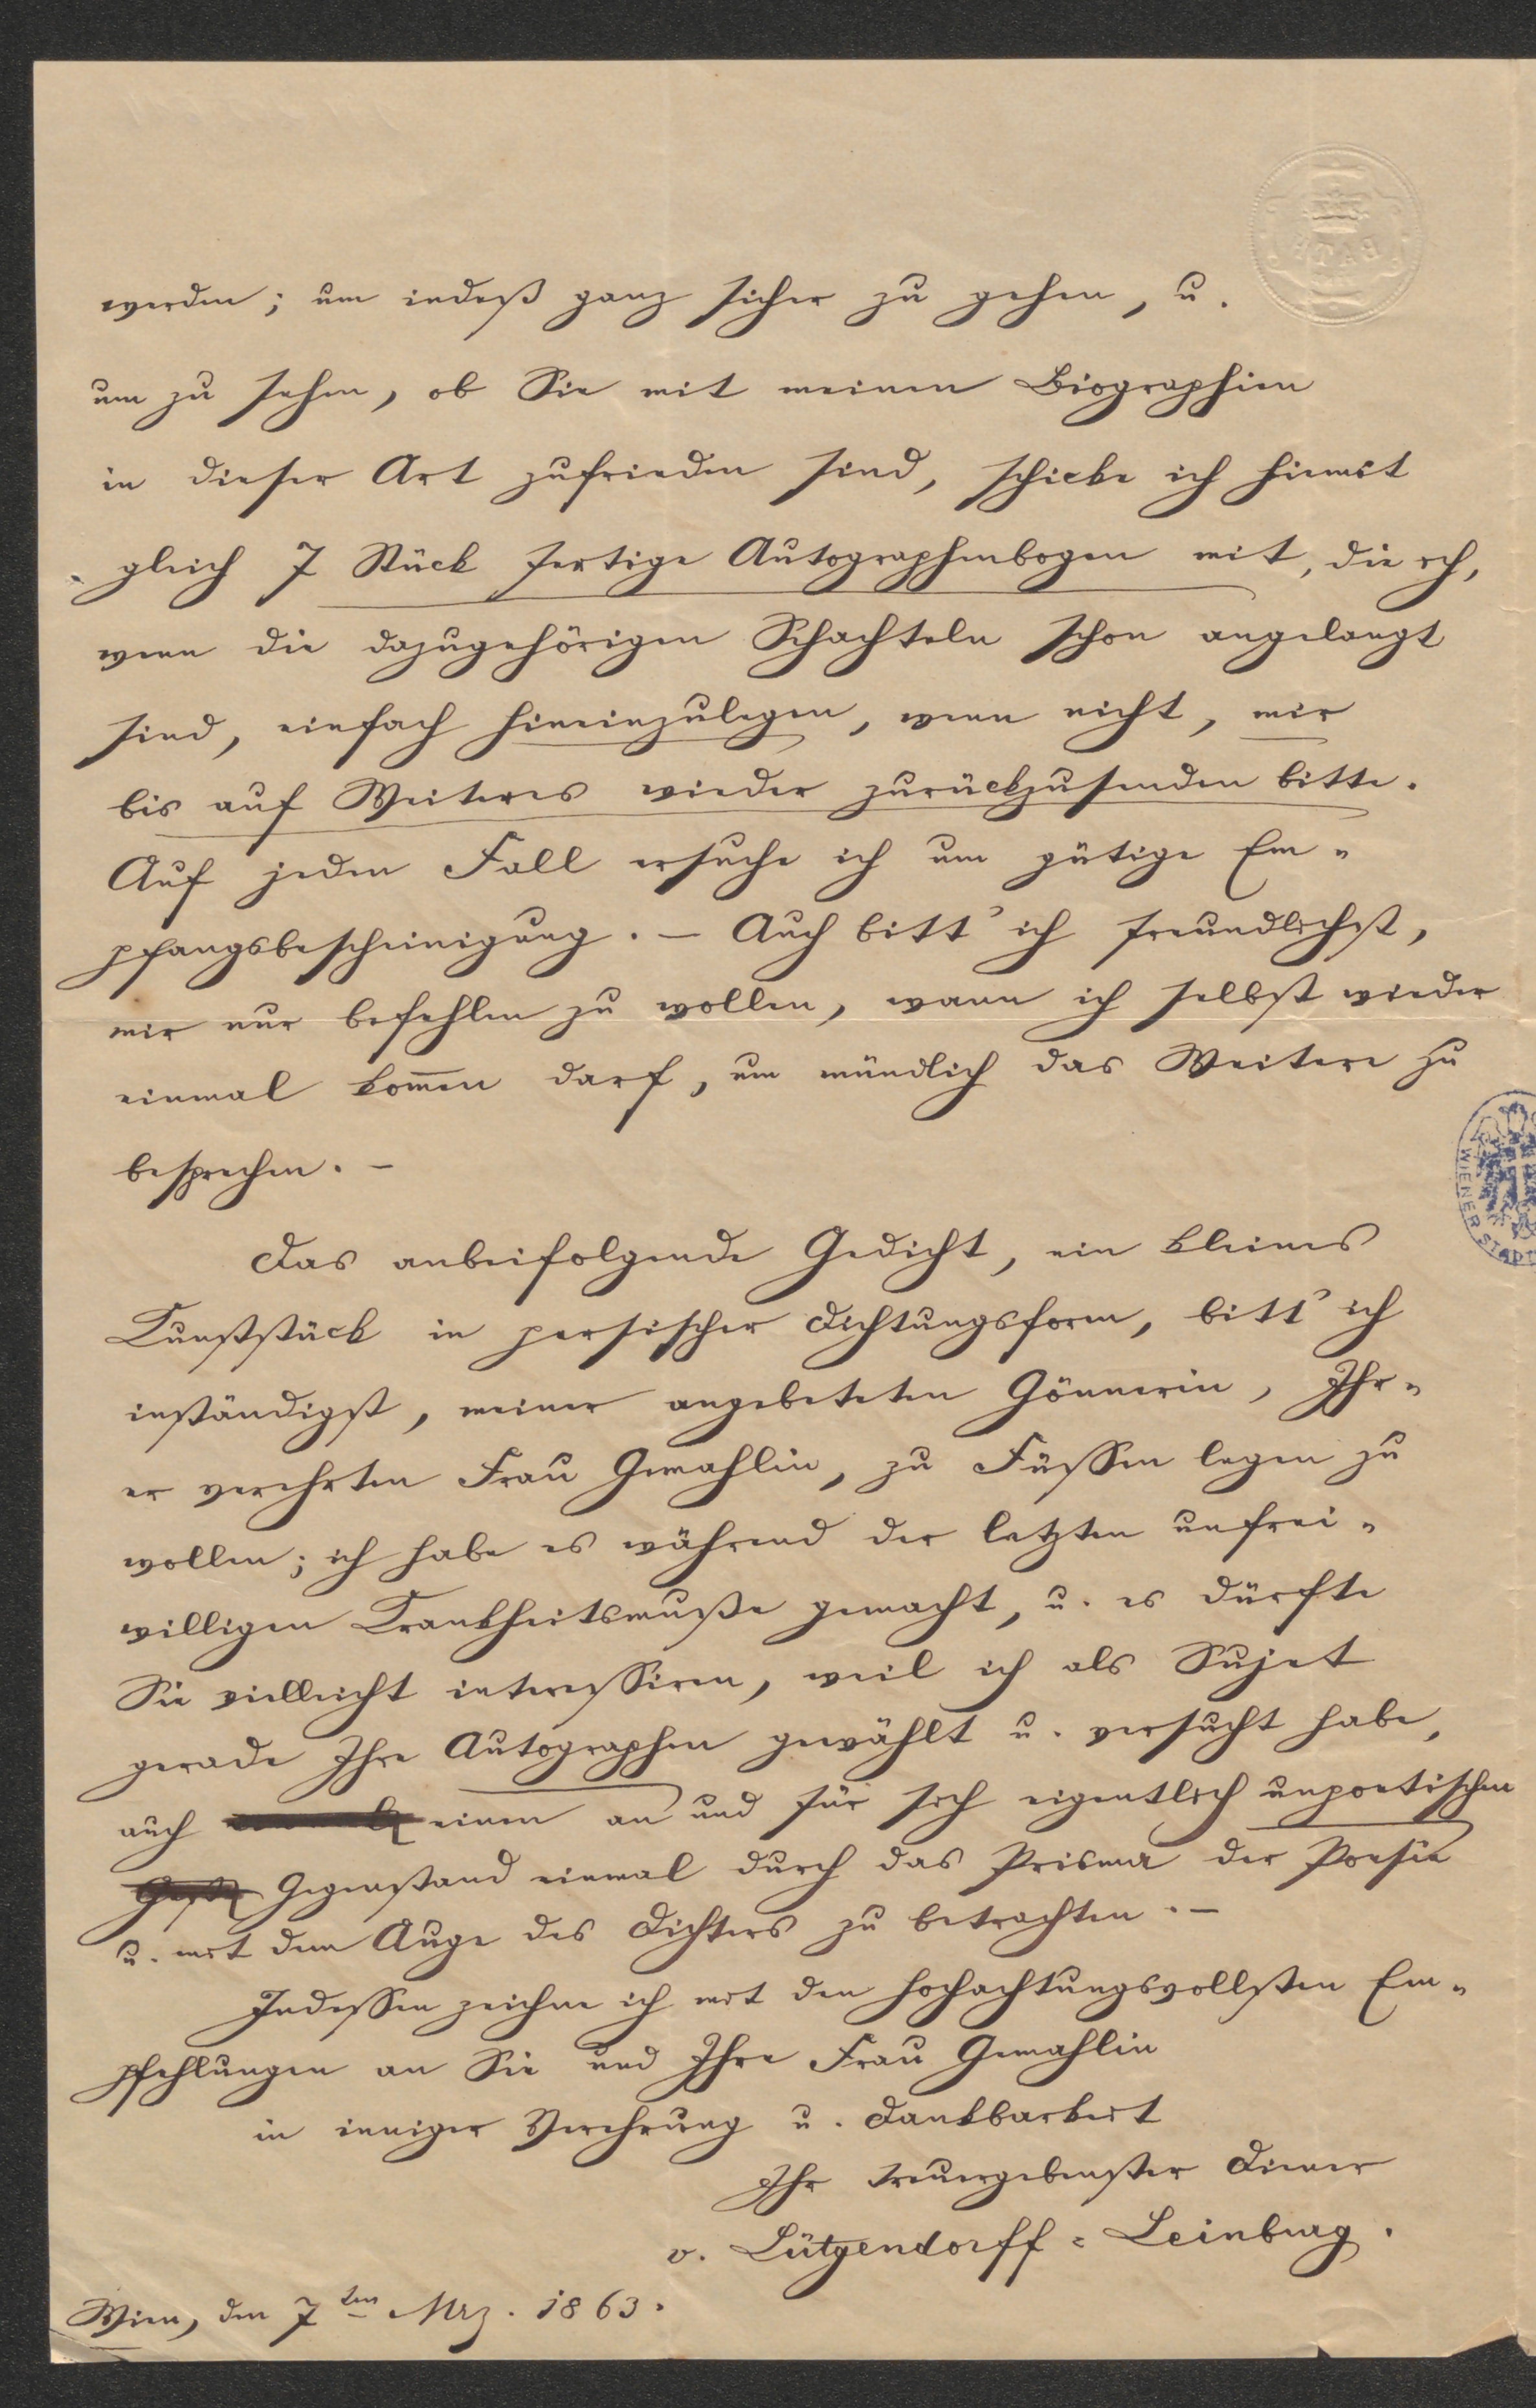 BATH
werden; um indeß ganz sicher zu gehen, u.
um zu sehen, ob Sie mit meinen Biographien
in dieser Art zufrieden sind, schicke ich hiemit
gleich 7 Stück fertige Autographenbogen mit, die ich,
wenn die dazugehörigen Schachteln schon angelangt
sind, einfach hineinzulegen, wenn nicht, mir
bis auf Weiteres wieder zurückzusenden bitte.
Auf jeden Fall ersuche ich um gütige Em-
pfangsbescheinigung. – Auch bitt' ich freundlichst,
mir nur befehlen zu wollen, wann ich selbst wieder
einmal kom̄en darf, um mündlich das Weitere zu
besprechen. –
WIENER STADT
Das anbeifolgende Gedicht, ein kleines
Kunststück in persischer Dichtungsform, bitt' ich
inständigst, meiner angebeteten Gönnerin, Ihr-
er verehrten Frau Gemahlin, zu Füssen legen zu
wollen; ich habe es während der letzten unfrei-
willigen Krankheitsmuße gemacht, u. es dürfte
Sie vielleicht interessiren, weil ich als Sujet
gerade Ihre Autographen gewählt u. versucht habe,
auch einen an und für sich eigentlich unpoetischen
Gegenstand einmal durch das Prisma der Poesie
u. mit dem Auge des Dichters zu betrachten. –
Indessen zeichne ich mit den hochachtungsvollsten Em-
pfehlungen an Sie und Ihre Frau Gemahlin
in inniger Verehrung u. Dankbarkeit
Ihr treuergebenster Diener
v. Lütgendorff-Leinburg.
Wien, den 7ten Mrz. 1863.